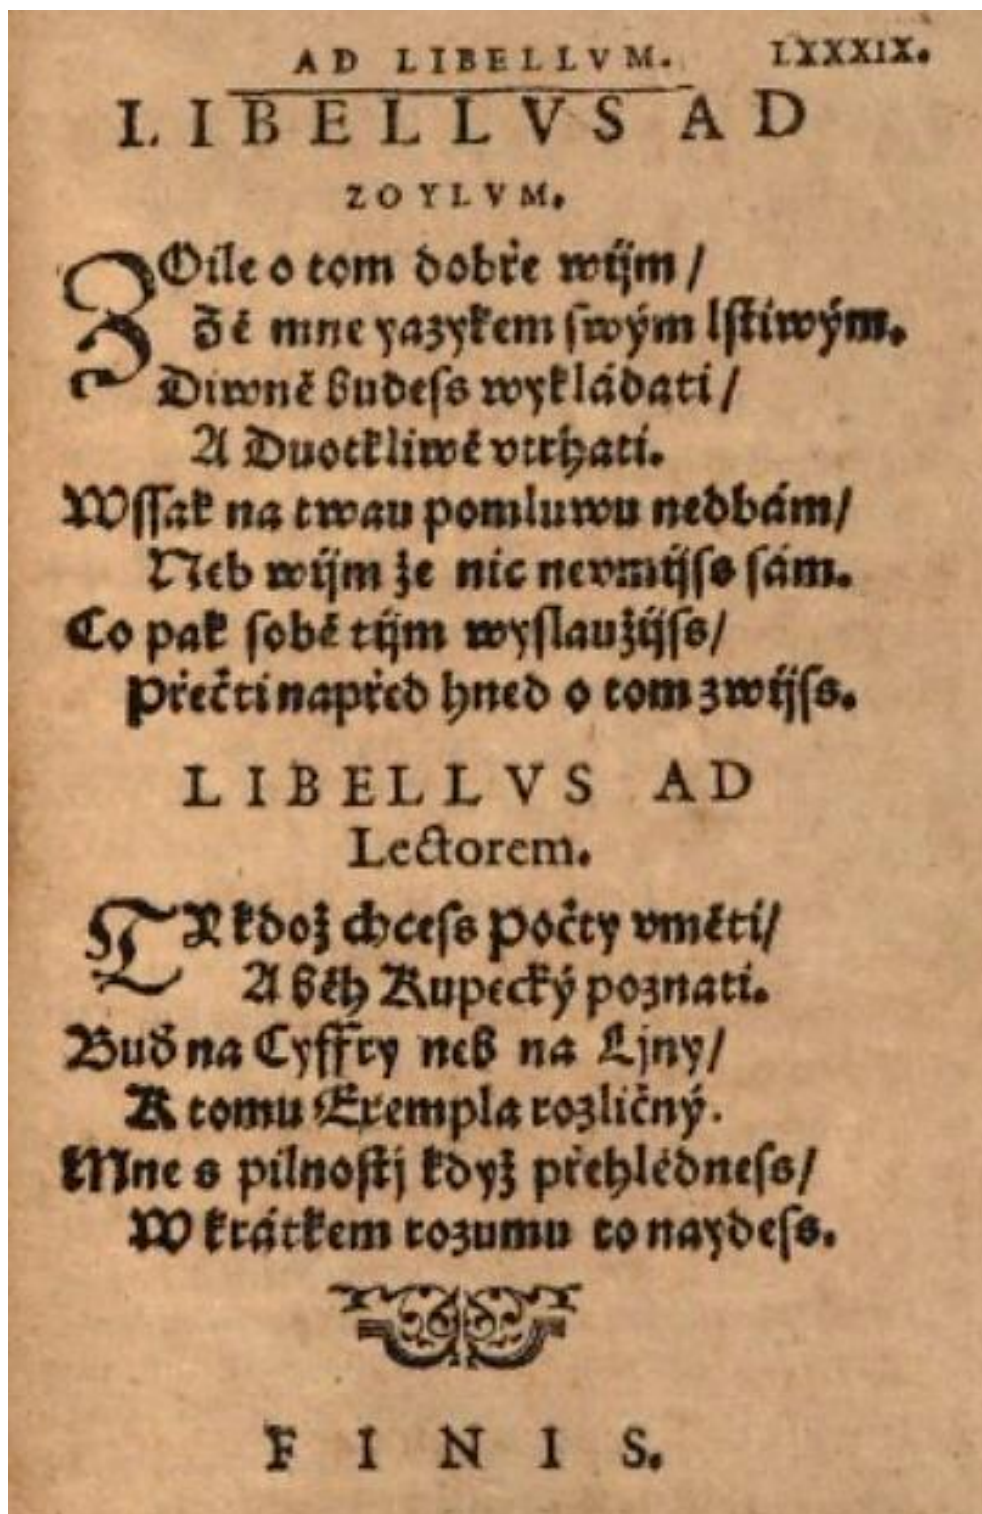 AD LIBELLVM. LXXXIX.
LIBELLVS AD
ZOYLVM.
ZOile o tom dobře wijm /
Žě mne yazykem swým lstiwým.
Diwně budess wykládati /
A Duotkliwě vtrhati.
Wssak na twau pomluwu nedbám /
Neb wijm že nic nevmijss sám.
Co pak sobě tijm wyslaužijss /
Přečti napřed hned o tom zwijss.
LIBELLVS AD
Lectorem.
TY kdož chcess Počty vměti /
A běh Kupecký poznati.
Buď na Cyffry neb na Ljny /
K tomu Exempla rozličný.
Mne s pilnostj když přehlédness /
W krátkem rozumu to naydess.
FINIS.